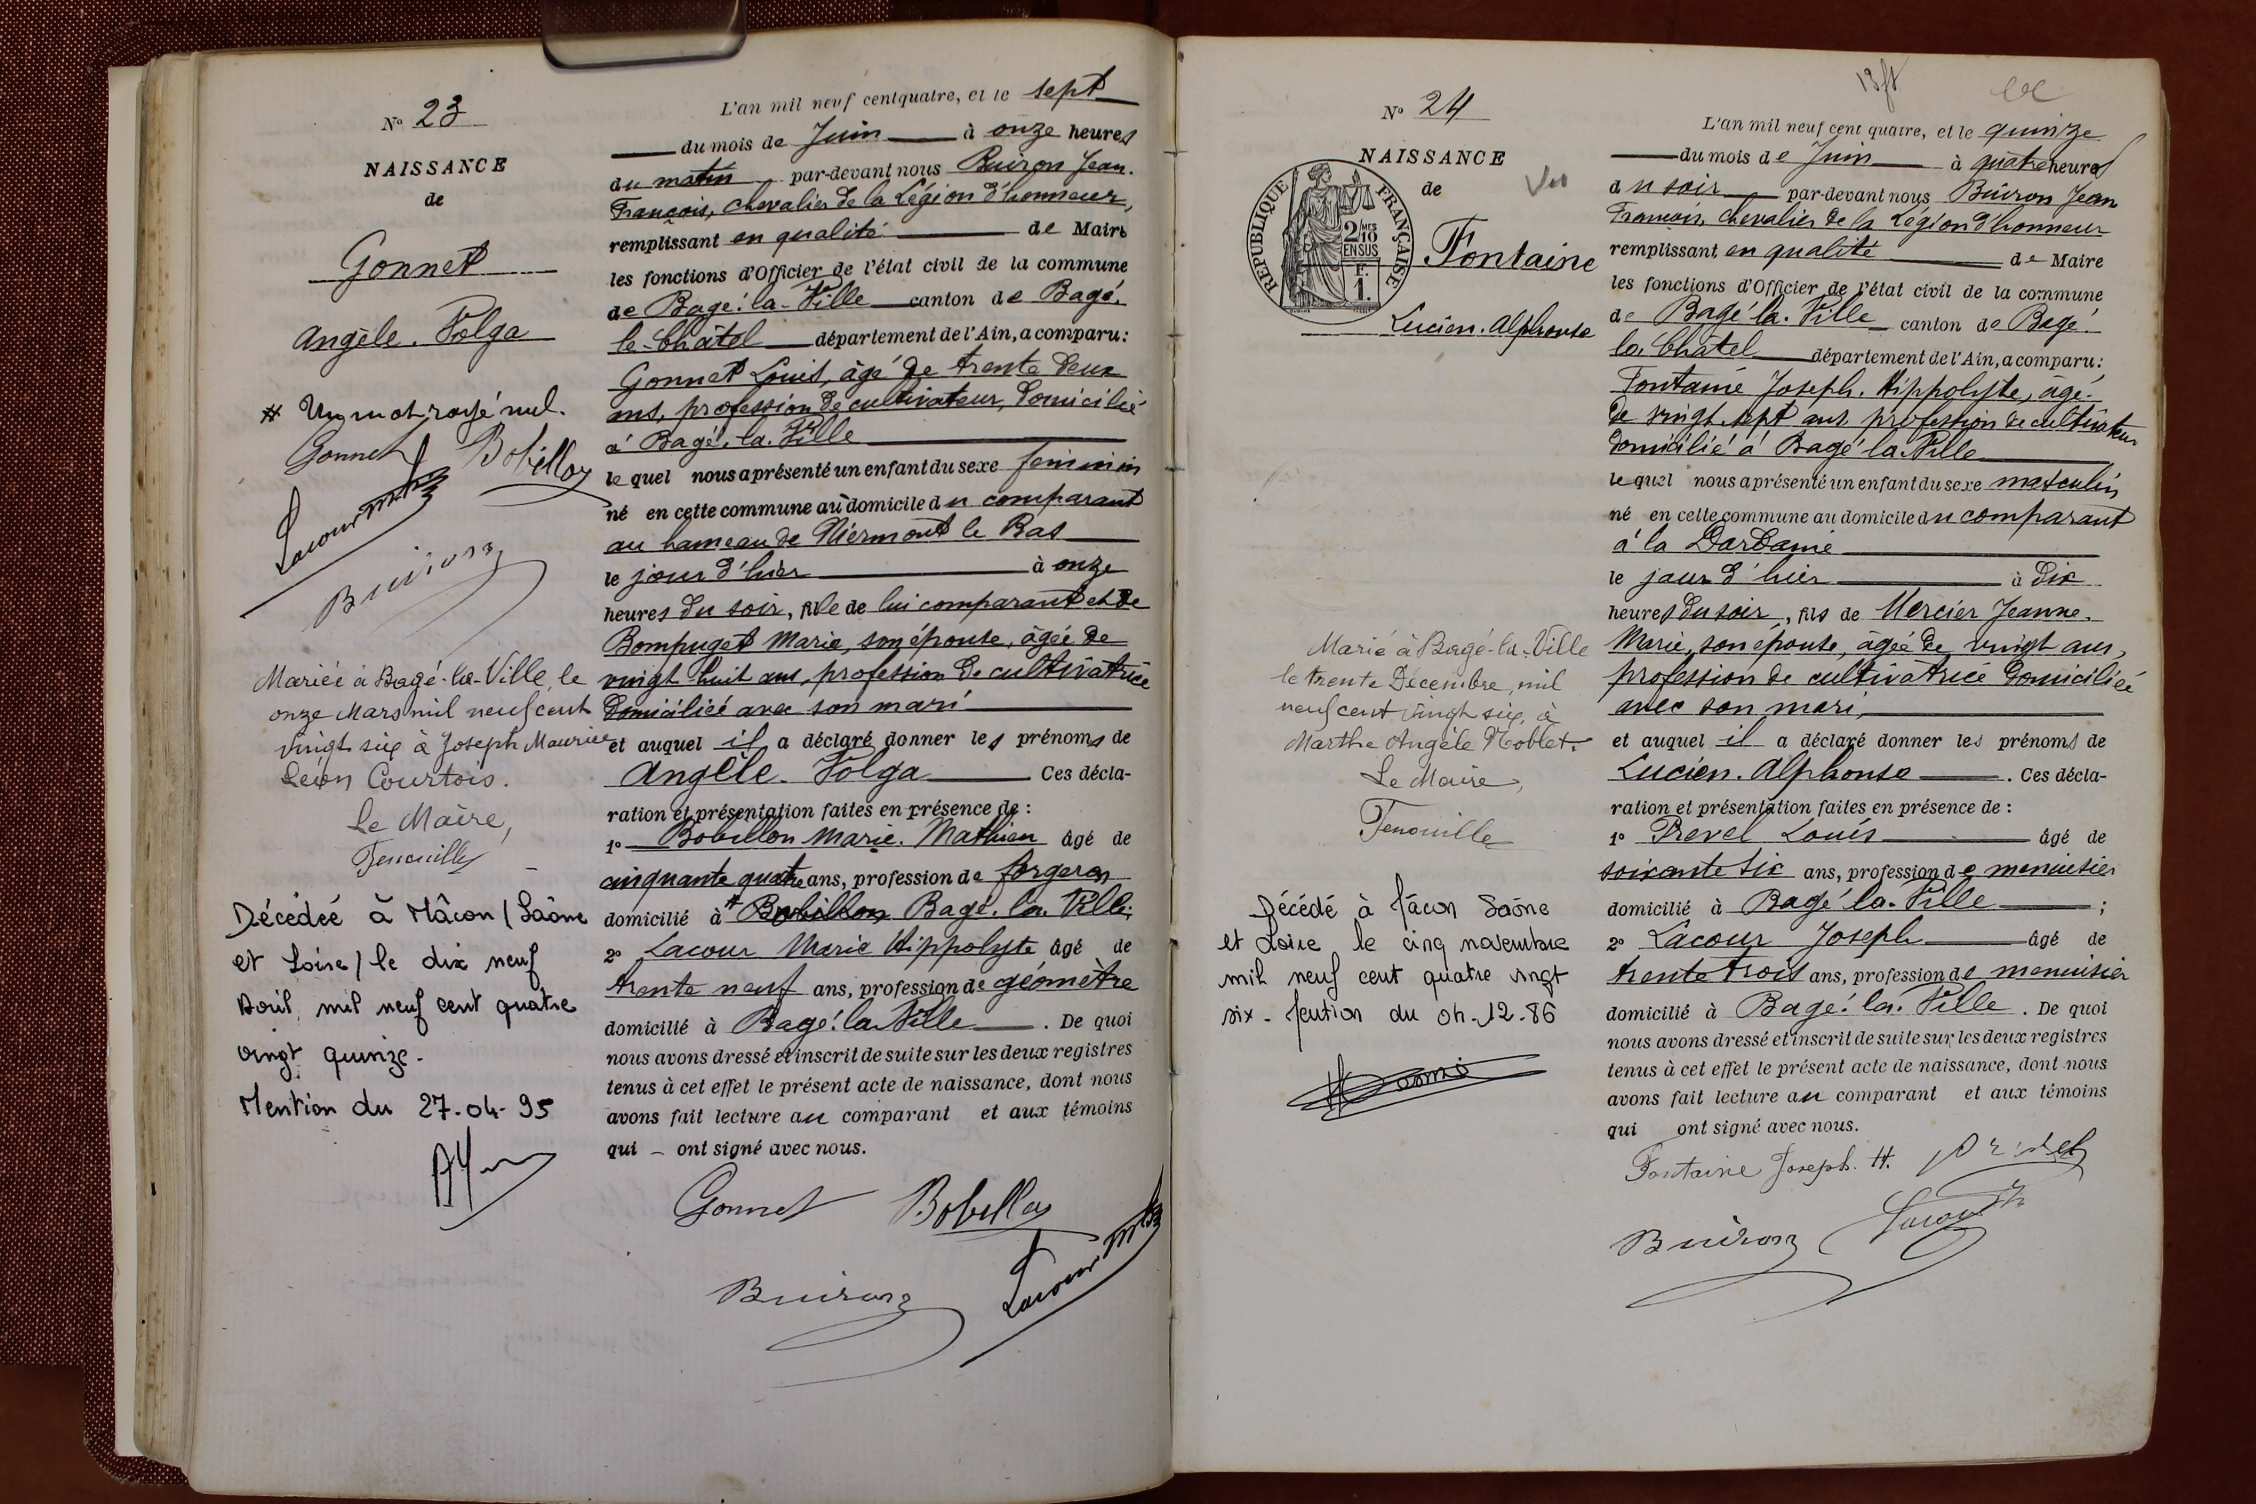 N° 23
NAISSANCE
de
Gonnet
Angèle. Volga
# Un mot rayé nul.
Gonnet Bobillon
Lacour
Buiron
Mariée à Bagé-la-Ville, le
onze Mars mil neuf cent
vingt six à Joseph Maurice
Léon Courtois.
Le Maire,
Fenouille
Décédée à Mâcon (Saône
et Loire) le dix neuf
Avril mil neuf cent quatre
vingt quinze.
Mention du 27-04-95
L'an mil neuf cent quatre, et le sept
du mois de Juin à onze heures
du matin par-devant nous Buiron Jean.
François, chevalier de la Légion d'honneur,
remplissant en qualité de Maire
les fonctions d'Officier de l'état civil de la commune
de Bagé-la-Ville canton de Bagé.
le-Châtel département de l'Ain, a comparu:
Gonnet Louis, âgé de trente deux
ans, profession de cultivateur, domicilié
à Bagé-la-Ville
le quel nous a présenté un enfant du sexe féminin
né en cette commune au domicile du comparant
au hameau de le Bas
le jour d'hier à onze
heures du soir, fille de lui comparant et de
Bompuget Marie, son épouse, âgée de
vingt huit ans, profession de cultivatrice
domiciliée avec son mari
et auquel il a déclaré donner les prénoms de
Angèle. Volga Ces décla-
ration et présentation faites en présence de :
1° Bobillon Marie. Mathieu âgé de
cinquante quatre ans, profession de forgeron
domicilié à # Bobillon Bagé. la. Ville;
2° Lacour Marie Hippolyte âgé de
trente neuf ans, profession de géomètre
domicilié à Bagé-la-Ville . De quoi
nous avons dressé et inscrit de suite sur les deux registres
tenus à cet effet le présent acte de naissance, dont nous
avons fait lecture au comparant et aux témoins
qui – ont signé avec nous.
Gonnet Bobillon
Buiron Lacour
N° 24
NAISSANCE
de
Vu
RÉPUBLIQUE FRANÇAISE
2/10 MES
EN SUS
F.
1.
Fontaine
Lucien. Alphonse
Marié à Bagé-la-Ville
le trente Décembre, mil
neuf cent vingt six, à
Marthe Angèle Noblet.
Le Maire,
Fenouille
Décédé à Mâcon Saône
et Loire le cinq novembre
mil neuf cent quatre vingt
six - Mention du 04-12-86
L'an mil neuf cent quatre, et le quinze
du mois de Juin à quatre heures
du soir par-devant nous Buiron Jean
François, chevalier de la Légion d'honneur
remplissant en qualité de Maire
les fonctions d'Officier de l'état civil de la commune
de Bagé-la-Ville canton de Bagé.
le. Châtel département de l'Ain, a comparu:
Fontaine Joseph. Hippolyte, âgé.
de vingt. sept ans profession de cultivateur
domicilié à Bagé la Ville
le quel nous a présenté un enfant du sexe masculin
né en cette commune au domicile du comparant
à la
le jour d'hier à dix
heures du soir, fils de Mercier Jeanne.
Marie, son épouse, âgée de vingt ans,
profession de cultivatrice domiciliée
avec son mari,
et auquel il a déclaré donner les prénoms de
Lucien. Alphonse . Ces décla-
ration et présentation faites en présence de :
1° Prevel Louis âgé de
soixante six ans, profession de menuisier
domicilié à Bagé-la-Ville ;
2° Lacour Joseph âgé de
trente trois ans, profession de menuisier
domicilié à Bagé-la-Ville . De quoi
nous avons dressé et inscrit de suite sur les deux registres
tenus à cet effet le présent acte de naissance, dont nous
avons fait lecture au comparant et aux témoins
qui ont signé avec nous.
Fontaine Joseph. H. Prevel
Buiron Lacour